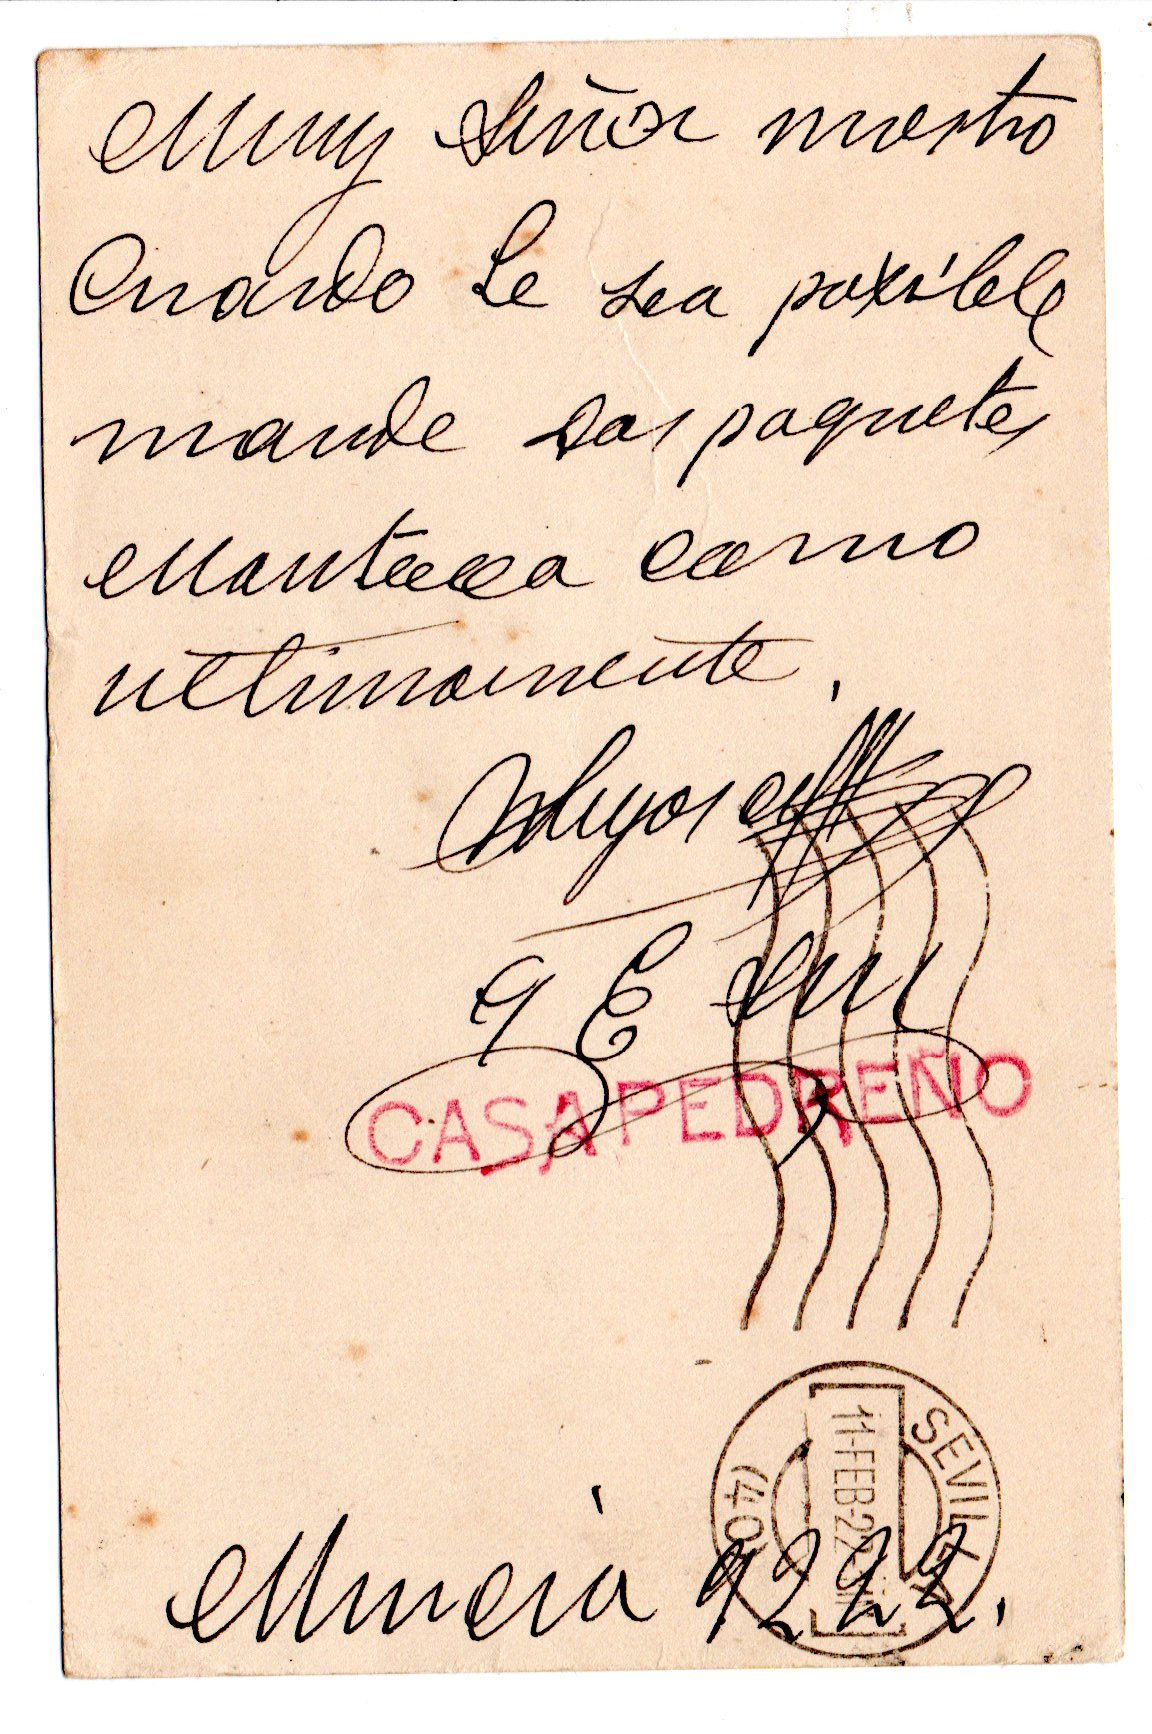 Muy Señor nuestro
Cuando Le sea posible
mande dos paquetes
Manteca como
ultimamente,
Suyos aff
q E S M
CASA PEDREÑO
SEVILLA
11-FEB-22
(40
Murcia 9 2 22.